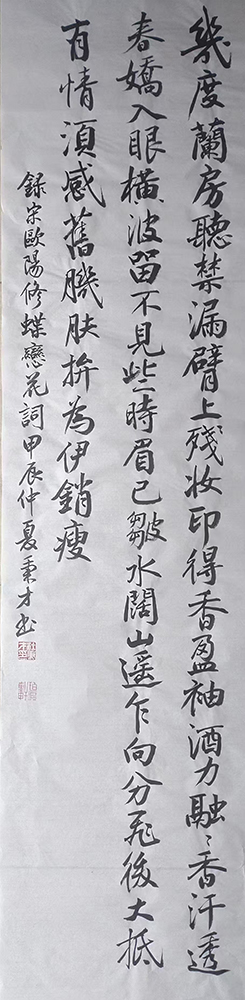 幾度蘭房聽禁漏臂上殘妝印得香盈袖酒力融〻香汗透
春嬌入眼橫波留不見些時眉已皺水闊山遙乍向分飛後大抵
有情須感舊肌肤拚為伊銷瘦
録宋歐陽修蝶戀花詞甲辰仲夏秉才书